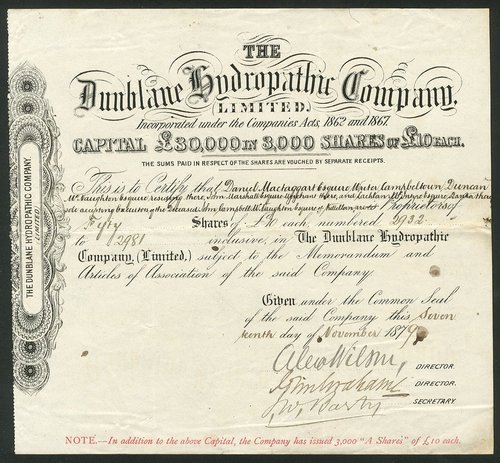 THE
Dunblane Hydropathic Company,
LIMITED.
Incorporated under the Companies Acts, 1862 and 1867.
CAPITAL £30,000 IN 3,000 SHARES OF £10 EACH.
THE SUMS PAID IN RESPECT OF THE SHARES ARE VOUCHED BY SEPARATE RECEIPTS.
This is to Certify that Daniel Mactaggart Esquire Writer Campbeltown, Duncan
McNaughton Esquire residing there, John Marshall Esquire there, and Lachlan Esquire
sole accepting Executors of the deceased John Campbell McNaughton Esquire of Proprietors of
Fifty Shares of £10 each, numbered 2932
to 2981 inclusive, in The Dunblane Hydropathic
Company, (Limited,) subject to the Memorandum and
Articles of Association of the said Company.
Given under the Common Seal
of the said Company this Seven
teenth day of November 1879
Alex Wilson, DIRECTOR.
John Graham DIRECTOR.
SECRETARY.
THE DUNBLANE HYDROPATHIC COMPANY,
(LIMITED.)
NOTE.—In addition to the above Capital, the Company has issued 3,000 "A Shares" of £10 each.